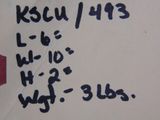 KSCU/493
L-6=
W-10=
H-2=
Wgt.-3Lbs.